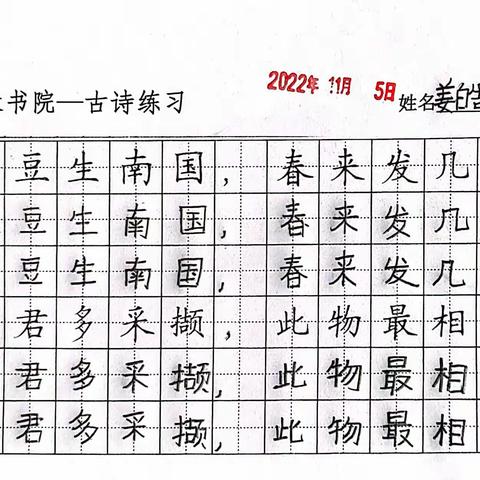 书院—古诗练习
2022年 11月 5日
姓名 姜皓
豆生南国，春来发几
豆生南国，春来发几
豆生南国，春来发几
君多采撷，此物最相
君多采撷，此物最相
君多采撷，此物最相